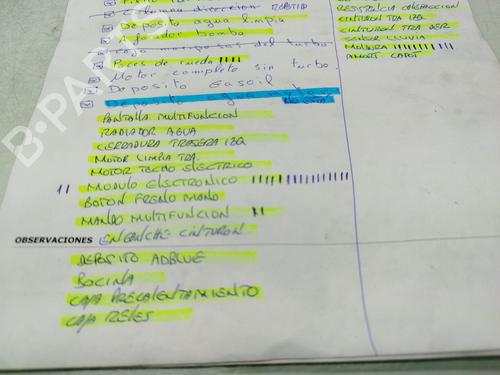 Columna direccion
Deposito agua limpia
Aforador bomba
Caja mariposas del turbo
Pases de rueda IIII
Motor completo sin turbo.
Deposito Gasoil
Deposito agua motor
NO ESTA
PANTALLA MULTIFUNCION
RADIADOR AGUA
CERRADURA TRASERA IZQ
MOTOR LIMPIA TRA.
MOTOR TECHO ELECTRICO
11 MODULO ELECTRONICO IIIIIIIIIIIIIIII
BOTON FRENO MANO
MANDO MULTIFUNCION II
OBSERVACIONES ENGANCHE CINTURON
DEPOSITO ADBLUE
BOCINA
CAJA PRECALENTAMIENTO
CAJA RELES
CINTURON TRA IZQ
CINTURON TRA DER
SENSOR LLUVIA
MOLDURA IIIIIIIIII
AMORT. CAPOT
B-PARTS